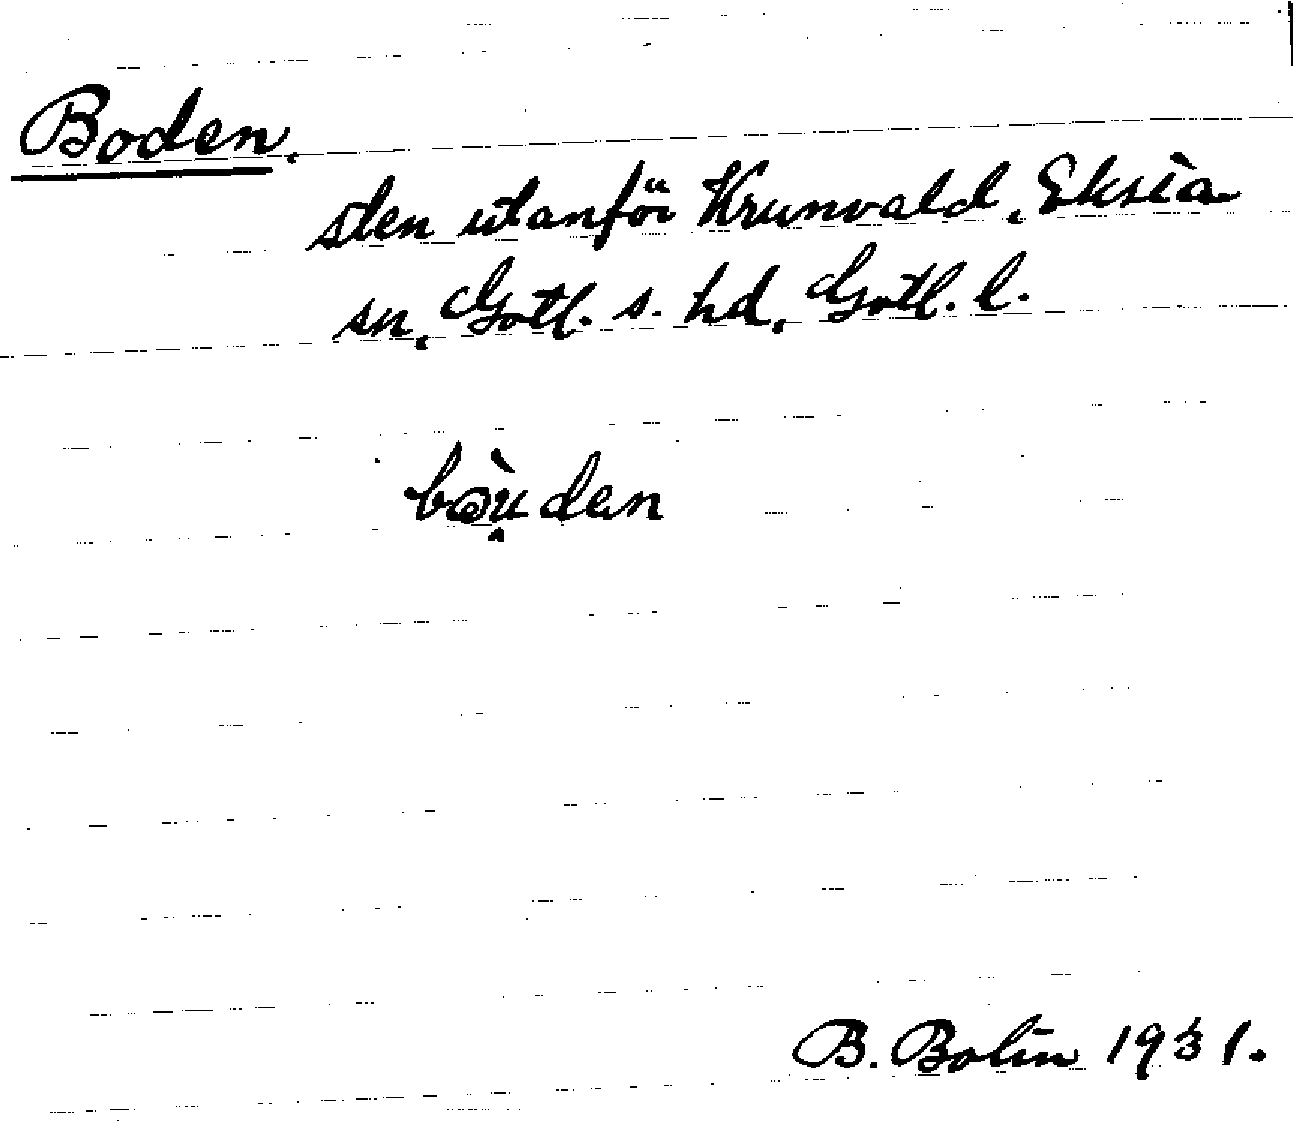 Boden.
sten utanför Krunvald, Eksta
sn, Gotl. s. hd, Gotl. l.
bə̀u̯dən
B. Bolin 1931.